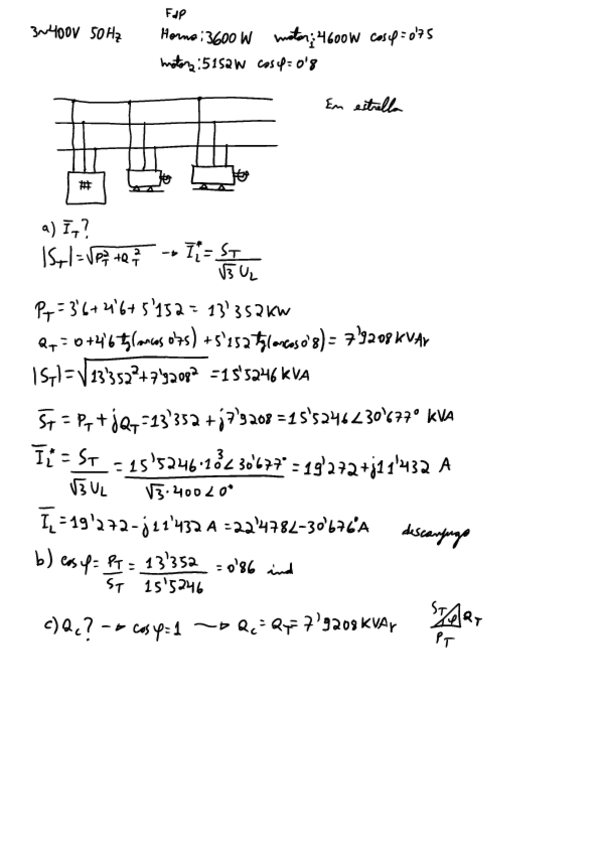 FdP
3~400V 50Hz Horno: 3600 W motor₁: 4600W cosφ=0'75
motor₂: 5152W cosφ=0'8
En estrella
a) I̅_T?
|S_T|=√(P_T²+Q_T²) → I̅_L*= S_T/(√3 U_L)
P_T=3'6+4'6+5'152= 13'352KW
Q_T= 0+4'6 tg(arcos 0'75) +5'152 tg(arcos 0'8)= 7'9208 KVAr
|S_T|=√(13'352²+7'9208²) =15'5246 KVA
S̅_T= P_T+jQ_T=13'352+j7'9208=15'5246∠30'677° KVA
I̅_L*= S_T/(√3 U_L) = 15'5246·10³∠30'677°/(√3·400∠0°) =19'272+j11'432 A
I̅_L=19'272-j11'432 A=22'478∠-30'676°A desconjugo
b) cosφ= P_T/S_T = 13'352/15'5246 =0'86 ind
c) Q_c? → cosφ=1 → Q_c= Q_T= 7'9208 KVAr S_T φ Q_T
P_T